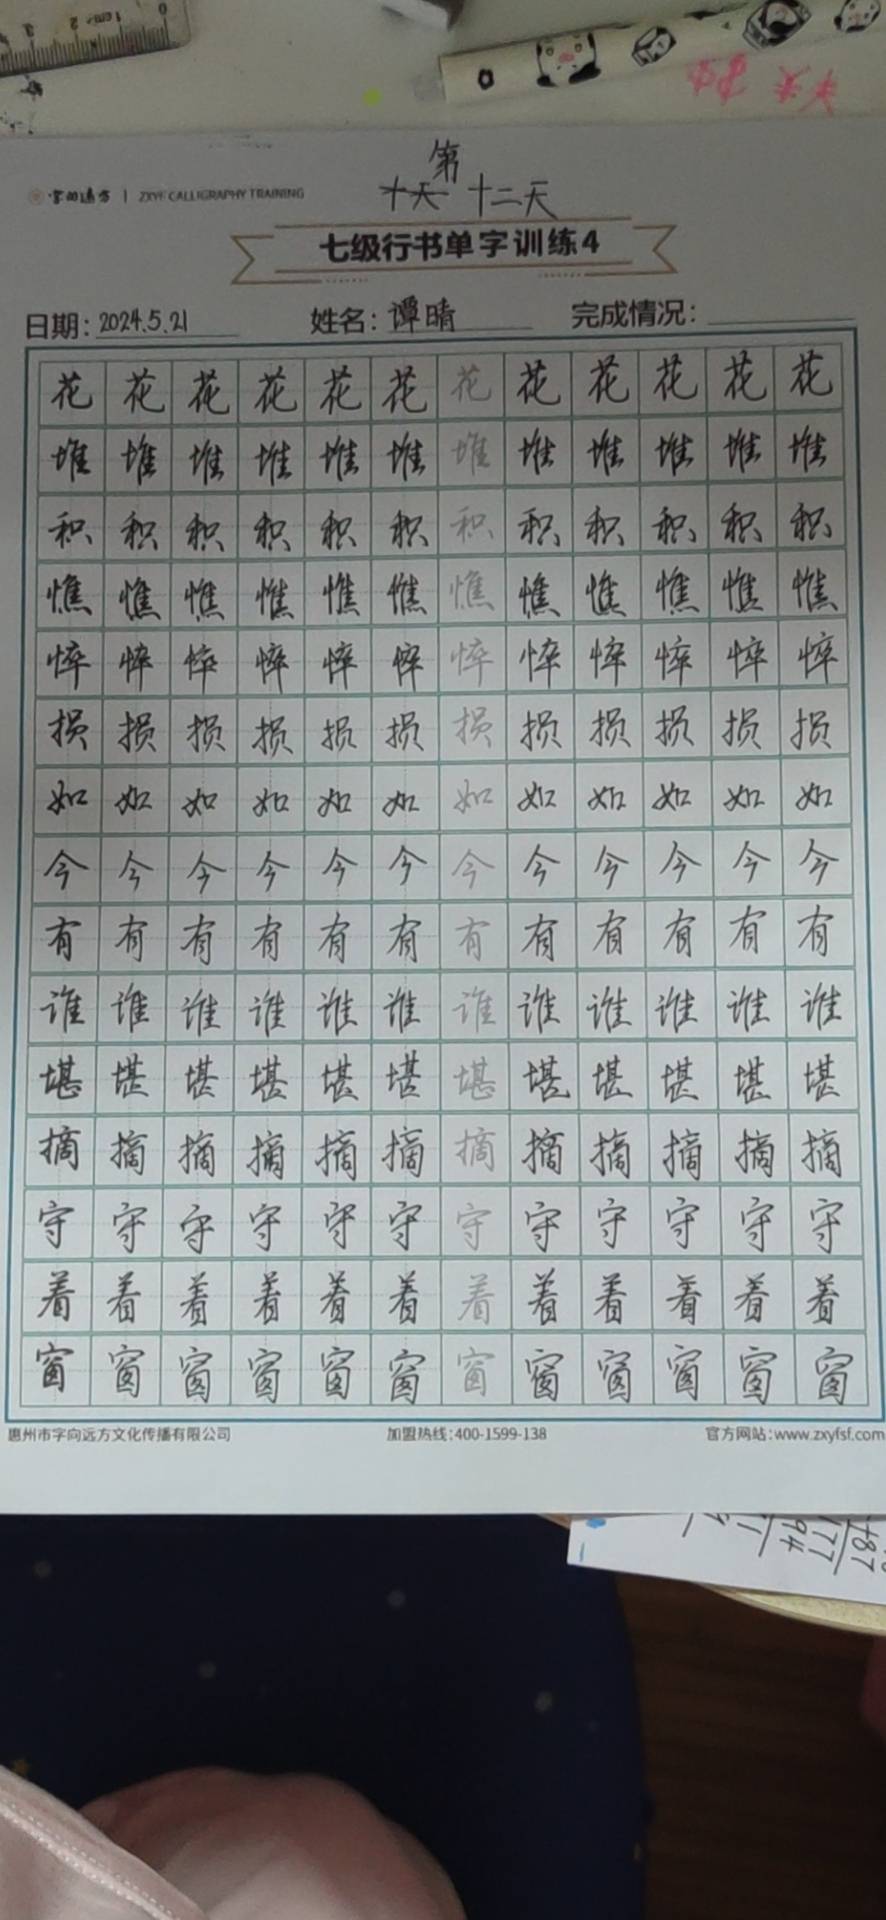 0 1cm 2 3
第
十天 十二天
字向远方 | ZXYF CALLIGRAPHY TRAINING
七级行书单字训练4
日期: 2024.5.21 姓名: 谭晴 完成情况:
花 花 花 花 花 花 花 花 花 花 花 花
堆 堆 堆 堆 堆 堆 堆 堆 堆 堆 堆 堆
积 积 积 积 积 积 积 积 积 积 积 积
憔 憔 憔 憔 憔 憔 憔 憔 憔 憔 憔 憔
悴 悴 悴 悴 悴 悴 悴 悴 悴 悴 悴 悴
损 损 损 损 损 损 损 损 损 损 损 损
如 如 如 如 如 如 如 如 如 如 如 如
今 今 今 今 今 今 今 今 今 今 今 今
有 有 有 有 有 有 有 有 有 有 有 有
谁 谁 谁 谁 谁 谁 谁 谁 谁 谁 谁 谁
堪 堪 堪 堪 堪 堪 堪 堪 堪 堪 堪 堪
摘 摘 摘 摘 摘 摘 摘 摘 摘 摘 摘 摘
守 守 守 守 守 守 守 守 守 守 守 守
着 着 着 着 着 着 着 着 着 着 着 着
窗 窗 窗 窗 窗 窗 窗 窗 窗 窗 窗 窗
惠州市字向远方文化传播有限公司 加盟热线:400-1599-138 官方网站:www.zxyfsf.com